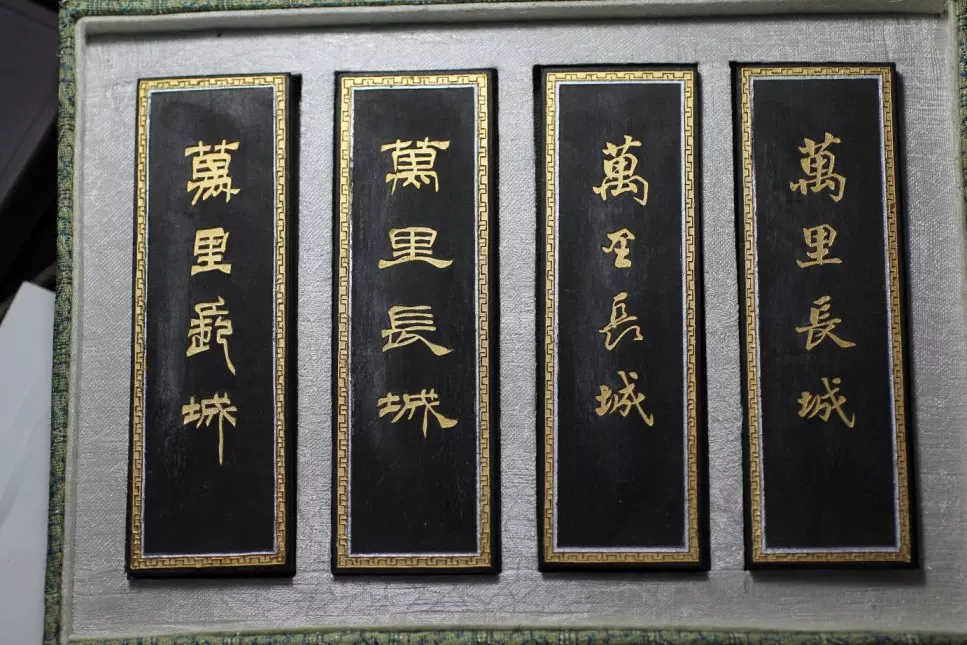 萬里長城
萬里長城
萬里長城
萬里長城